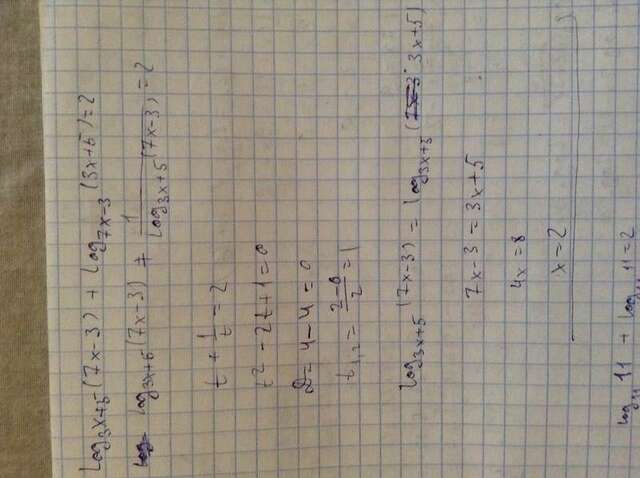 log₃ₓ₊₅(7x-3) + log₇ₓ₋₃(3x+5)=2
log₃ₓ₊₅(7x-3) + 1/log₃ₓ₊₅(7x-3) = 2
t + 1/t = 2
t² - 2t + 1 = 0
D = 4 - 4 = 0
t₁,₂ = (2-0)/2 = 1
log₃ₓ₊₅(7x-3) = log₃ₓ₊₅(3x+5)
7x-3 = 3x+5
4x = 8
x = 2
log₁₁ 11 + log₁₁ 11 = 2